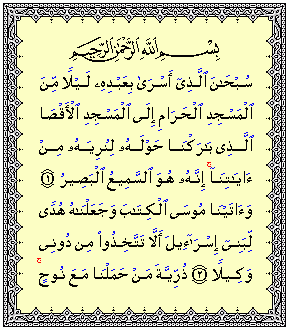 بِسْمِ ٱللَّهِ ٱلرَّحْمَٰنِ ٱلرَّحِيمِ
سُبْحَٰنَ ٱلَّذِىٓ أَسْرَىٰ بِعَبْدِهِۦ لَيْلًا مِّنَ
ٱلْمَسْجِدِ ٱلْحَرَامِ إِلَى ٱلْمَسْجِدِ ٱلْأَقْصَا
ٱلَّذِى بَٰرَكْنَا حَوْلَهُۥ لِنُرِيَهُۥ مِنْ
ءَايَٰتِنَآ ۚ إِنَّهُۥ هُوَ ٱلسَّمِيعُ ٱلْبَصِيرُ ۝١
وَءَاتَيْنَا مُوسَى ٱلْكِتَٰبَ وَجَعَلْنَٰهُ هُدًى
لِّبَنِىٓ إِسْرَٰٓءِيلَ أَلَّا تَتَّخِذُوا۟ مِن دُونِى
وَكِيلًا ۝٢ ذُرِّيَّةَ مَنْ حَمَلْنَا مَعَ نُوحٍ ۚ